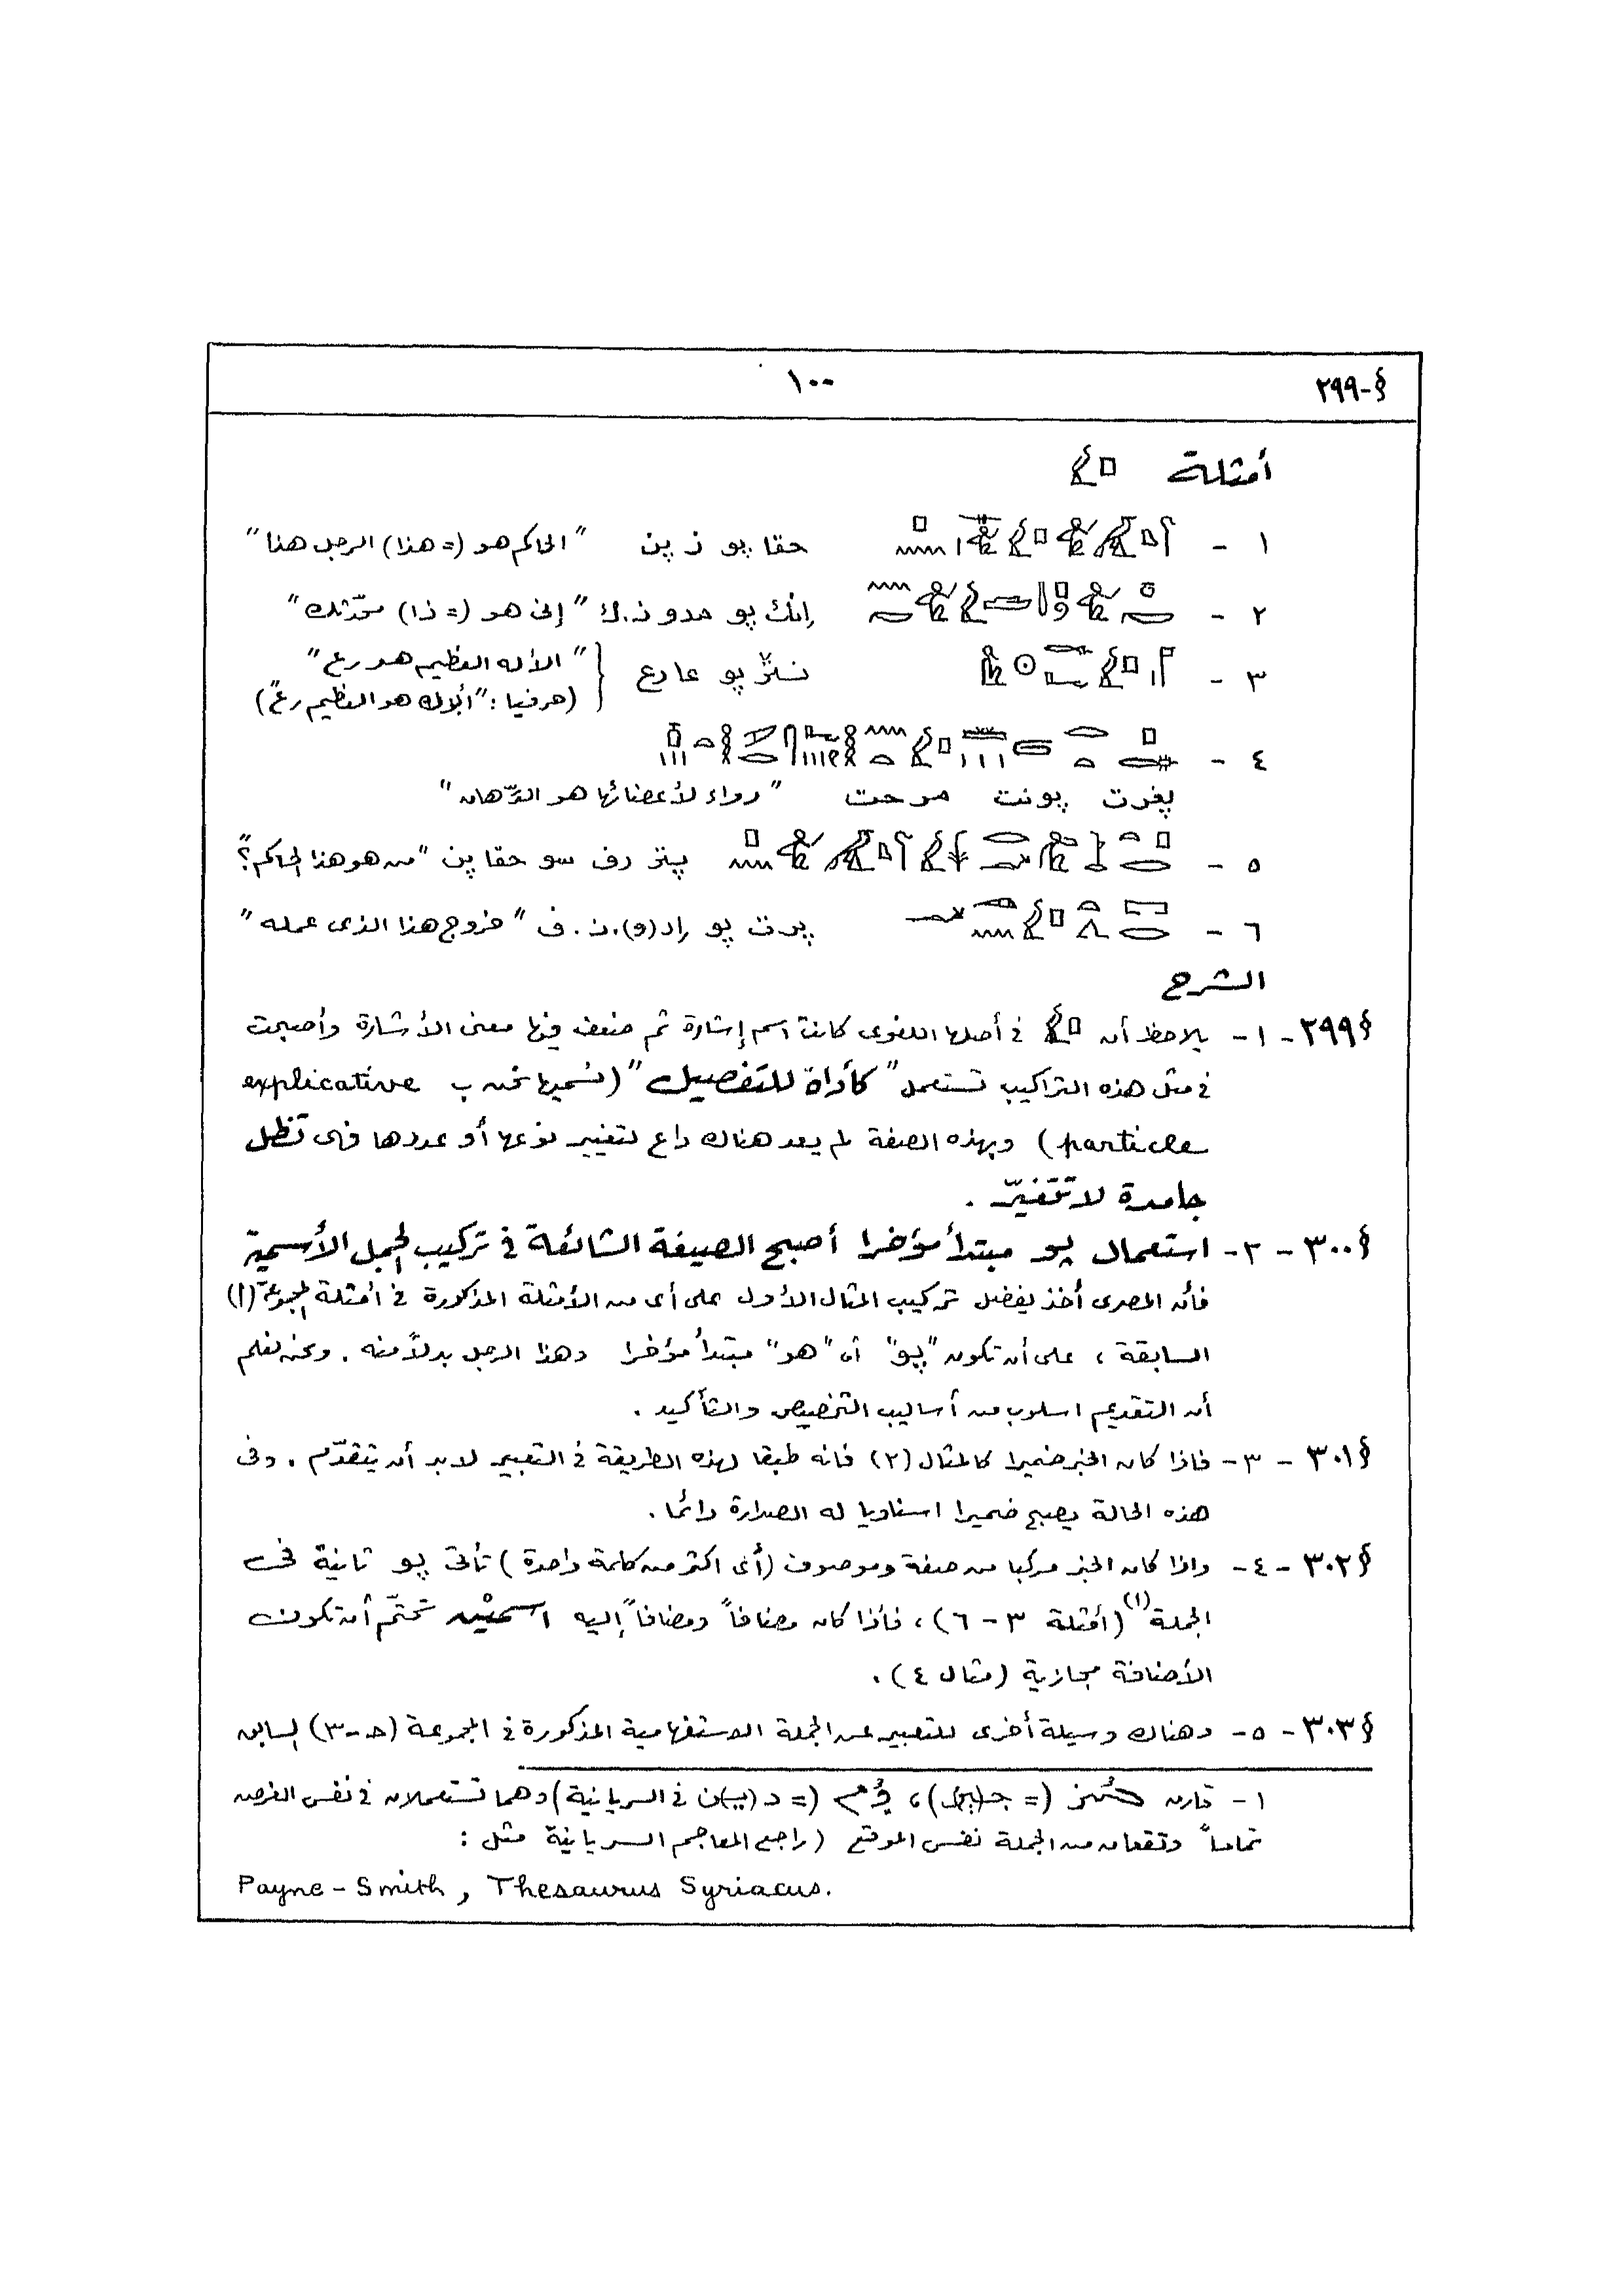 §-٢٩٩ ١٠٠
أمثلة
١ - حقا پو ز پن "الحاكم هو (= هذا) الرجل هنا"
٢ - إنك پو مدو ن.ك "إنى هو (= ذا) محدّثك"
٣ - نثر پو عا رع "الأله العظيم هو رع"
(حرفيا: "ألإله هو العظيم رع")
٤ -
پغرت پونت مرحت "دواء لأعضائها هو الدّهان"
٥ - پتر رف سو حقا پن "من هو هذا الحاكم؟"
٦ - پرت پو إر(و).ن.ف "خروج هذا الذى عمله"
الشرح
§٢٩٩ - ١ - يلاحظ أن فى أصلها اللغوى كانت اسم إشارة ثم ضعف فيها معنى الأشارة وأصبحت
فى مثل هذه التراكيب تستعمل "كأداة للتفصيل" (نسميها نحن ب explicative
particle) وبهذه الصفة لم يعد هناك داع لتغيير نوعها أو عددها فهى تظل
جامدة لا تتغيّر .
§٣٠٠ - ٢ - استعمال پو مبتدأ مؤخرا أصبح الصيغة الشائعة فى تركيب الجمل الأسمية
فأن المصرى أخذ يفضل تركيب المثال الأول على أى من الأمثلة المذكورة فى أمثلة المجموعة (ا)
السابقة ، على أن تكون "پو" أى "هو" مبتدأ مؤخرا وهذا الرجل بدلاً منه . ونحن نعلم
أن التقديم اسلوب من أساليب التخصيص والتأكيد .
§٣٠١ - ٣ - فاذا كان الخبر ضميرا كالمثال (٢) فانه طبقا لهذه الطريقة فى التعبير لابد أن يتقدّم . وفى
هذه الحالة يصبح ضميرا اسناديا له الصدارة دائما .
§٣٠٢ - ٤ - واذا كان الخبر مركبا من صفة وموصوف (أى اكثر من كلمة واحدة) تأتى پو ثانية فى
الجملة(١) (أمثلة ٣ - ٦) ، فأذا كان مضافاً ومضافاً إليه اسميْن تحتّم أن تكون
الأضافة مجازية (مثال ٤) .
§٣٠٣ - ٥ - وهناك وسيلة أخرى للتعبير عن الجملة الاستفهامية المذكورة فى المجموعة (حـ-٣) السابق
١ - قارن (= د(يـ)ن فى السريانية) وهما تستعملان فى نفس الغرض
تماماً وتقعان من الجملة نفس الموقع (راجع المعاجم السريانية مثل :
Payne-Smith, Thesaurus Syriacus.